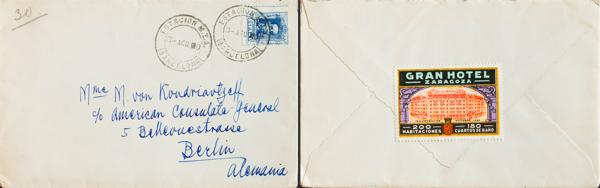 30
ESTACION M.Z.A.
3-AGO.30
(BARCELONA)
ESTACION M.Z.A.
3-AGO.30
(BARCELONA)
Mme M. von Kondriavtzeff
c/o American Consulate General
5 Bellevuestrasse
Berlin
Alemania
GRAN HOTEL
ZARAGOZA
200
HABITACIONES
180
CUARTOS DE BAÑO